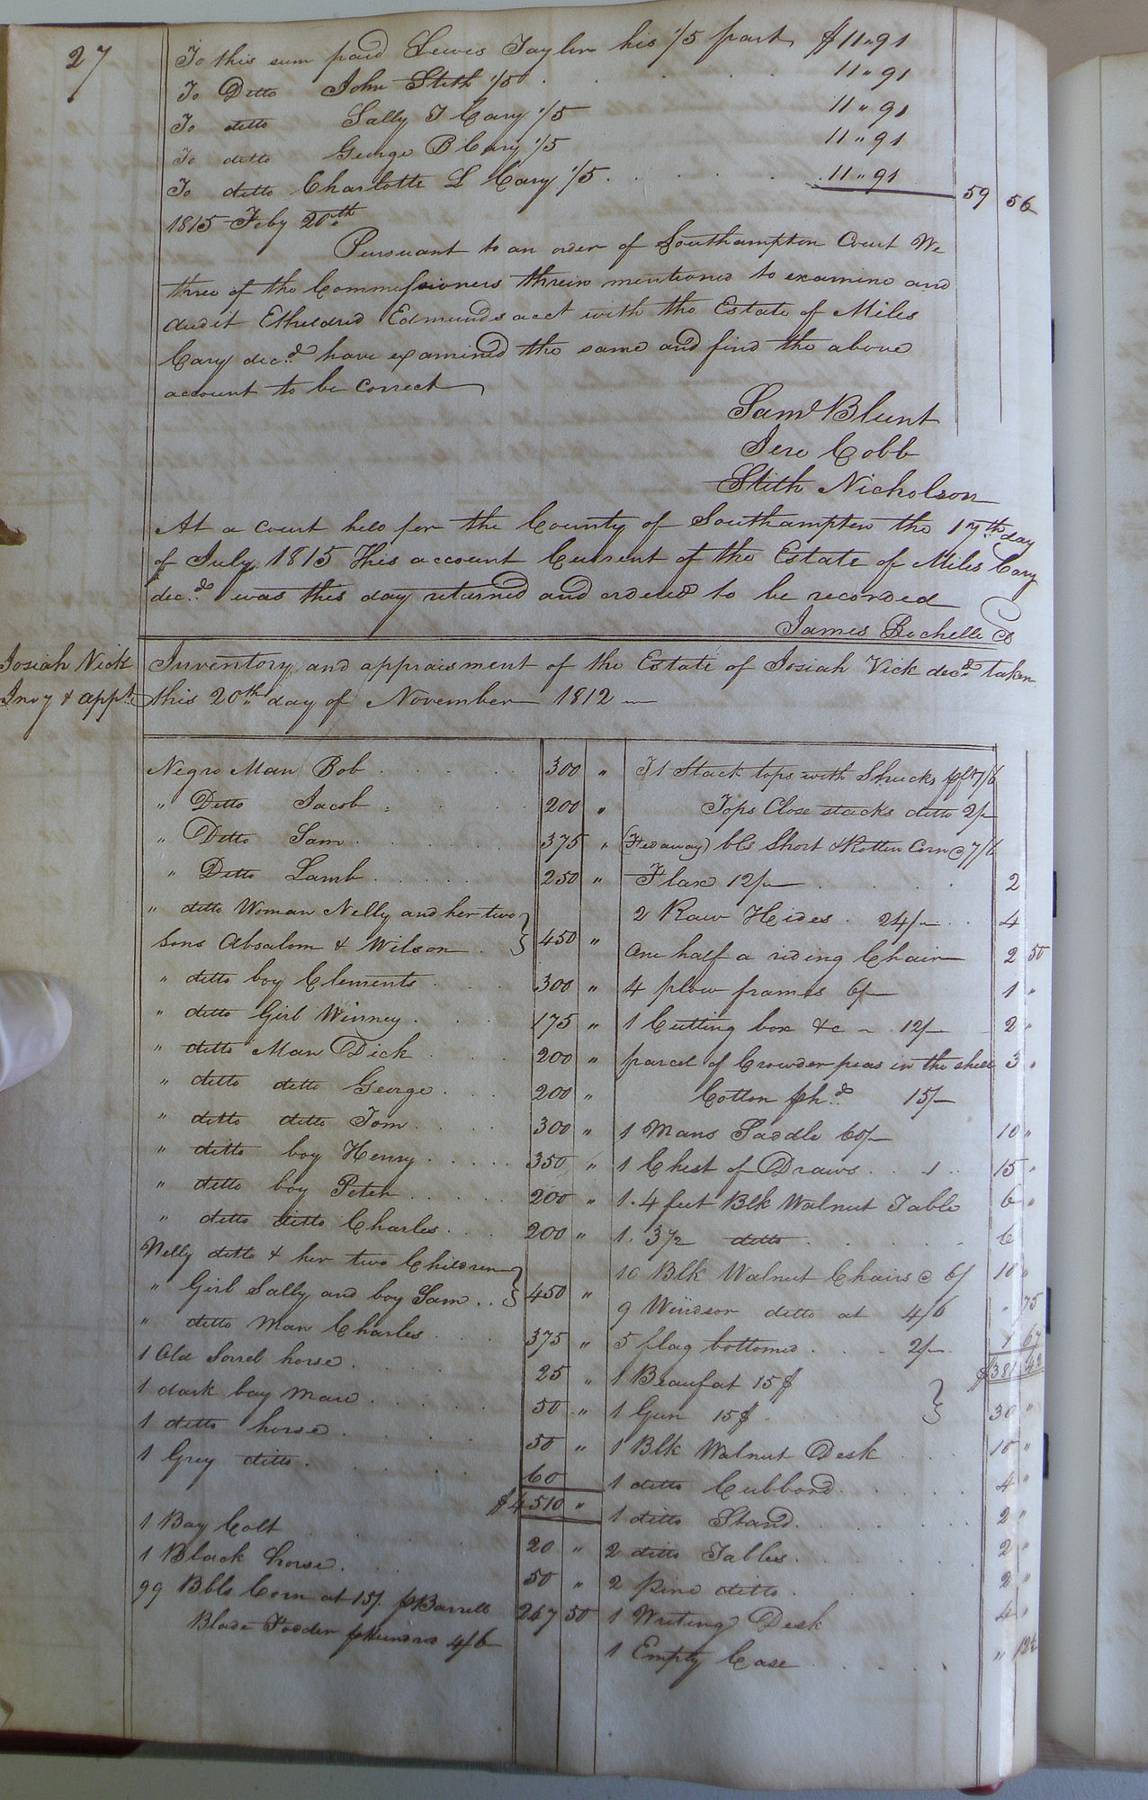 27
To this sum paid Lewis Taylor his 1/5 part $11"91
To Ditto John Stith 1/5 11"91
To ditto Sally T Cary 1/5 11"91
To ditto George B Cary 1/5 11"91
To ditto Charlotte L Cary 1/5 11"91 59 56
1815 Feby 20th
Pursuant to an order of Southampton Court We
three of the Commissioners therein mentioned to examine and
Audit Etheldred Edmunds acct with the Estate of Miles
Cary decd have examined the same and find the above
account to be Correct
Saml Blunt
Jere Cobb
Stith Nicholson
At a court held for the County of Southampton the 17th day
of July 1815 This account Current of the Estate of Miles Cary
decd was this day returned and ordered to be recorded
James Rochelle CS
Josiah Vick
Invy & appt
Inventory and appraisment of the Estate of Josiah Vick decd taken
this 20th day of November 1812
Negro Man Bob 300 "
" Ditto Jacob 200 "
" Ditto Sam 375 "
" Ditto Lamb 250 "
" ditto Woman Nelly and her two
Sons Absalom & Wilson 450 "
" ditto boy Clements 300 "
" ditto Girl Winney 175 "
" ditto Man Dick 200 "
" ditto ditto George 200 "
" ditto ditto Tom 300 "
" ditto boy Henry 350 "
" ditto boy Peter 200 "
" ditto ditto Charles 200 "
Nelly ditto & her two Children
" Girl Sally and boy Sam 450 "
" ditto Man Charles 375 "
1 Old Sorrel horse 25 "
1 dark bay Mare 50 "
1 ditto horse 50 "
1 Grey ditto 60
$4510 "
1 Bay Colt 20 "
1 Black horse 50 "
99 Bbls Corn at 15/ p Barrell 247 50
Blade Fodder p hundred 4/6
1 Stack tops with Shucks 7/6
Tops Close stacks ditto 2/
bls Short & Rotten Corn @ 7/6
Flax 12/ 2
2 Raw Hides 24/ 4
One half a riding Chair 2 50
4 plow frames 6/ 1 "
1 Cutting box &c 12/ 2 "
parcel of Crowder peas in the shell 3 "
Cotton p hd 15/
1 Mans Saddle 60/ 10 "
1 Chest of Draws 15 "
1. 4 feet Blk Walnut Table 6 "
1. 3 1/2 ditto 6
10 Blk Walnut Chairs @ 6/ 10 "
9 Windsor ditto at 4/6 " 75
5 flag bottomed 2/ 1 67
$381 42
1 Beaufat 15$
1 Gun 15$ 30 "
1 Blk Walnut Desk 10 "
1 ditto Cubbord 4 "
1 ditto Stand 2 "
2 ditto Tables 2 "
2 pine ditto 2 "
1 Writing Desk 4 "
1 Empty Case " 12 1/2